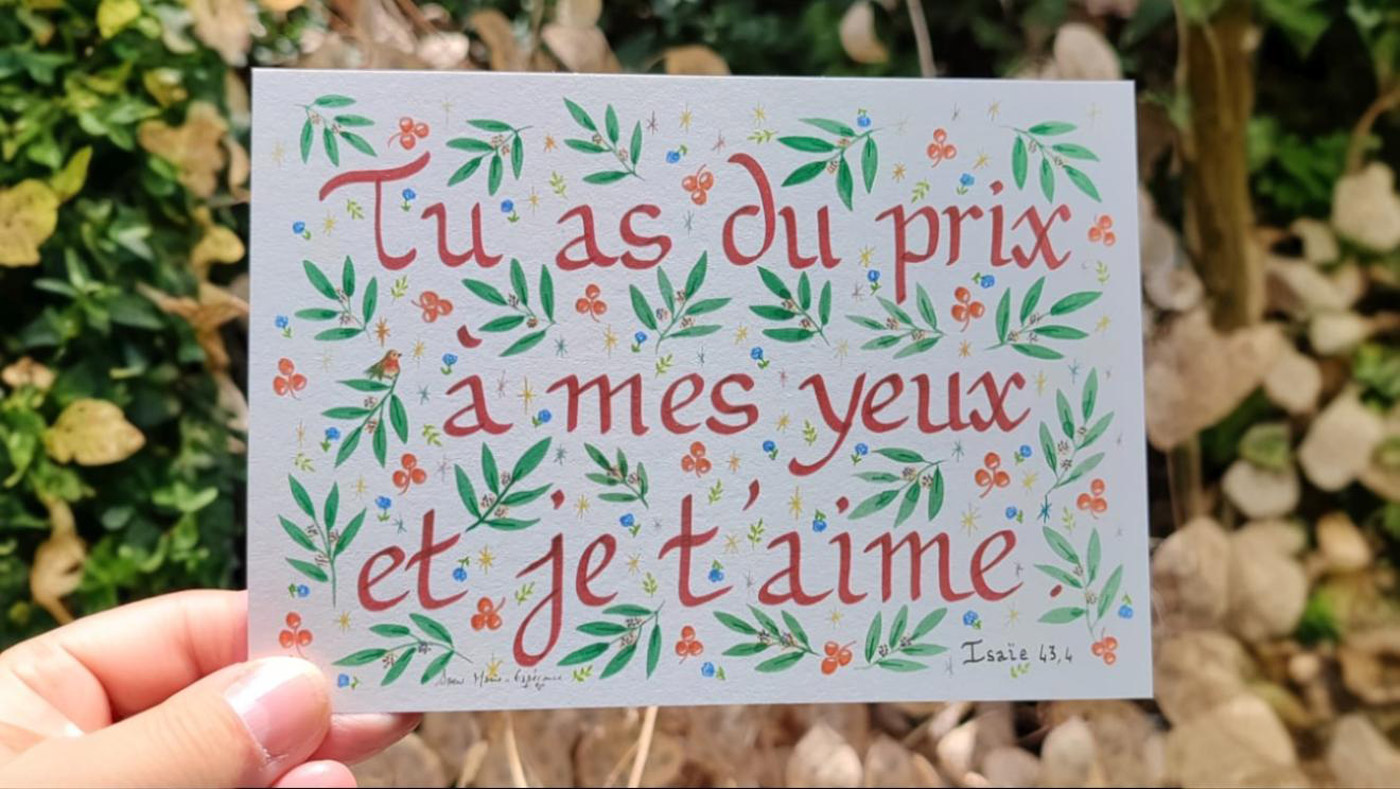 Tu as du prix
à mes yeux
et je t'aime.
Isaïe 43,4